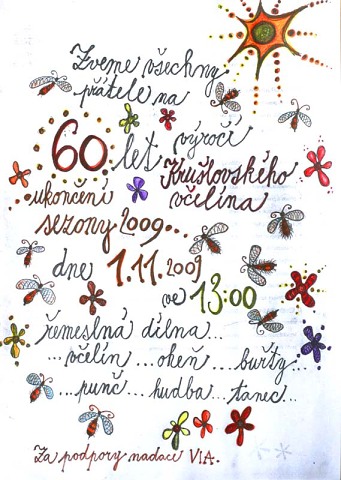 Zveme všechny
přátele na
60 let výročí
Krušlovského
včelína
ukončení
sezony 2009...
dne 1.11.2009
ve 13:00
řemeslná dílna...
...včelín...oheň...buřty...
...punč...hudba...tanec...
Za podpory nadace VIA.